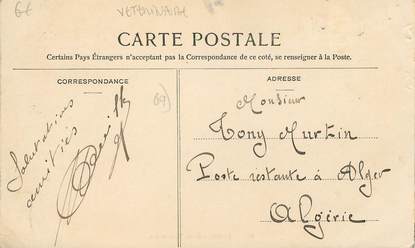 6€
VETERINAIRE
CARTE POSTALE
Certains Pays Étrangers n'acceptant pas la Correspondance de ce coté, se renseigner à la Poste.
CORRESPONDANCE
Salutations
amitiés
(69)
ADRESSE
Monsieur
Tony Murtin
Poste restante à Alger
Algérie